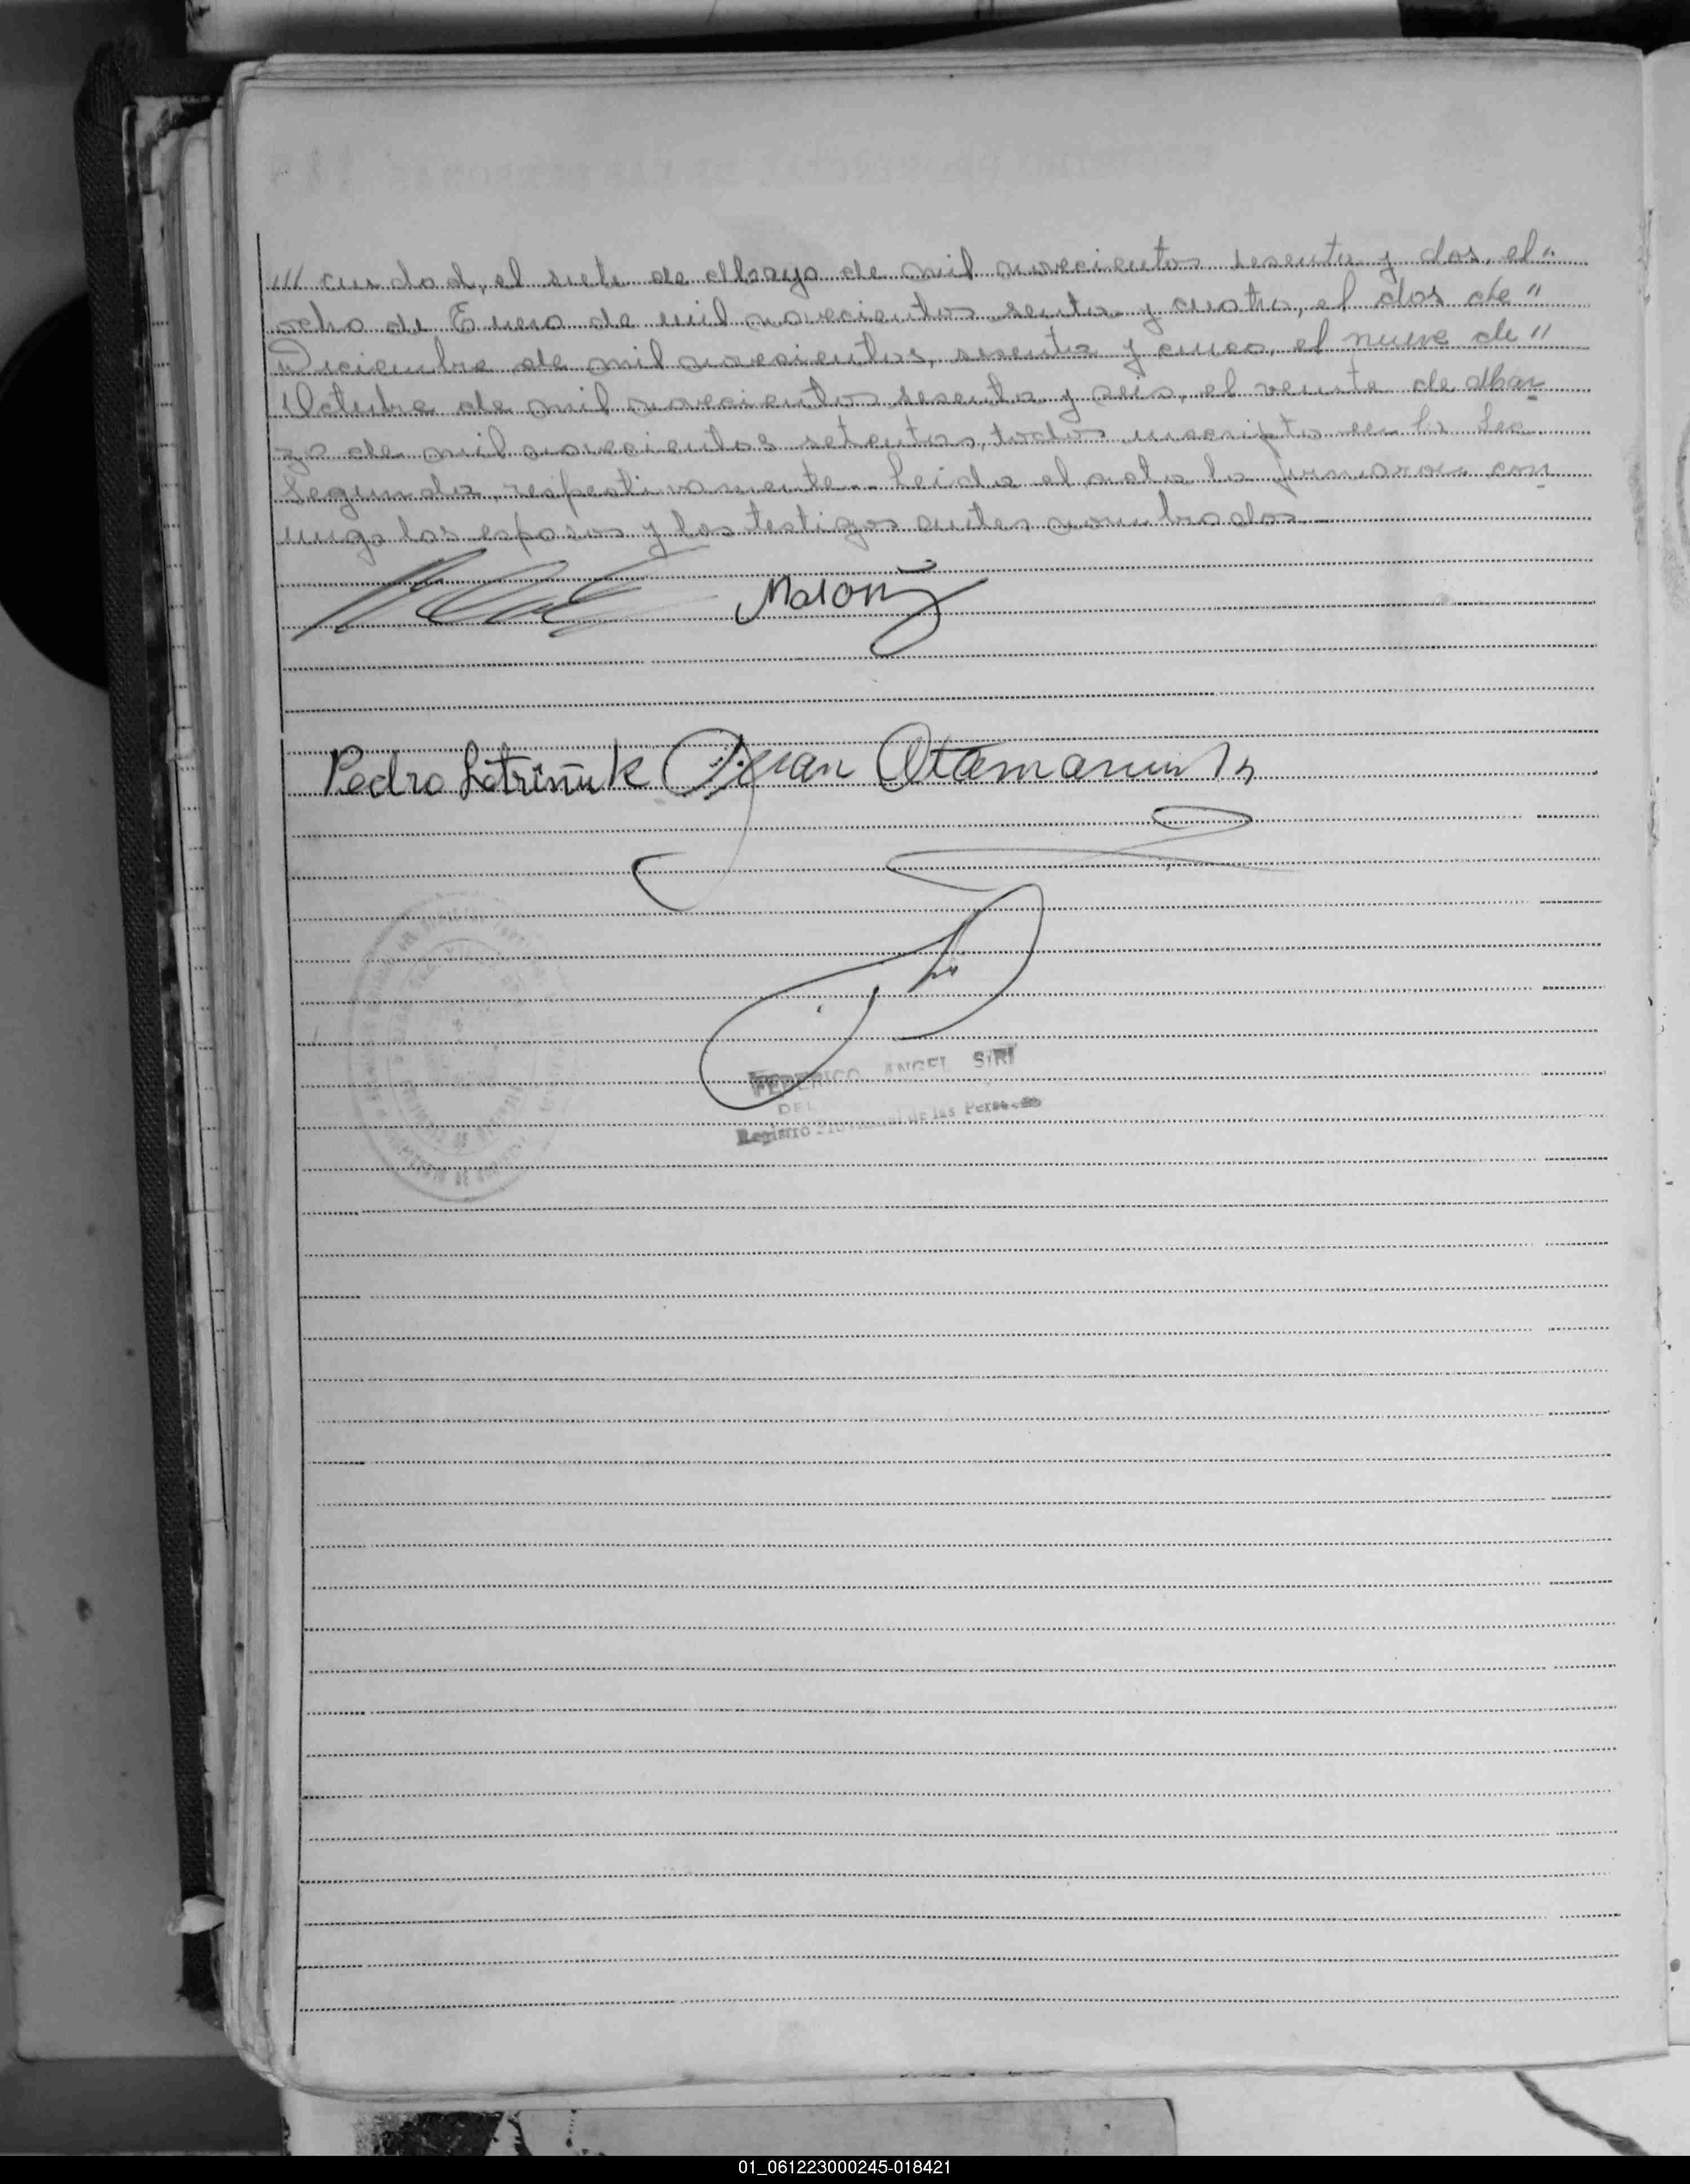 /// ciudad, el siete de Mayo de mil novecientos sesenta y dos, el "
ocho de Enero de mil novecientos senta y cuatro, el dos de "
Diciembre de mil novecientos, sesenta y cinco, el nueve de "
Octubre de mil novecientos sesenta y seis, el veinte de Mar
zo de mil novecientos setenta, todos inscripto en la Sec.
Segunda, respectivamente.- Leida el acta la firmaron con
migo los esposos y los testigos antes nombrados.
Pedro Juan
FEDERICO ANGEL SIRI
DEL
Registro Provincial de las Personas
01_061223000245-018421